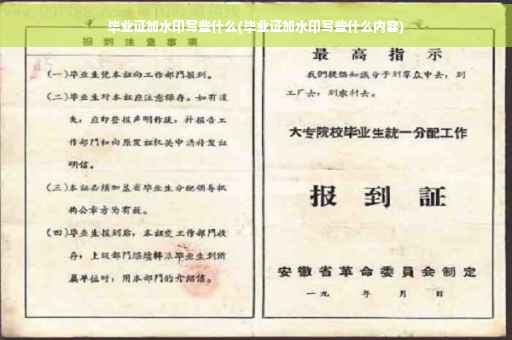 毕业证加水印写些什么(毕业证加水印写些什么内容)
报到注意事项
(一)毕业生凭本证向工作部门报到。
(二)毕业生对本证应注意保存。如有遗
失,应即登报声明作废,并报告工
作部门和向原发证机关申请补发证
明信。
(三)本证必须加盖省毕业生分配领导机
构公章方为有效。
(四)毕业生报到后,本证交工作部门收
存;上级部门继续转派毕业生到所
属单位时,用本部门的介绍信。
最高指示
我们提倡知识分子到群众中去,到
工厂去,到农村去。
大专院校毕业生统一分配工作
报到証
安徽省革命委员会制定
一九 年 月 日